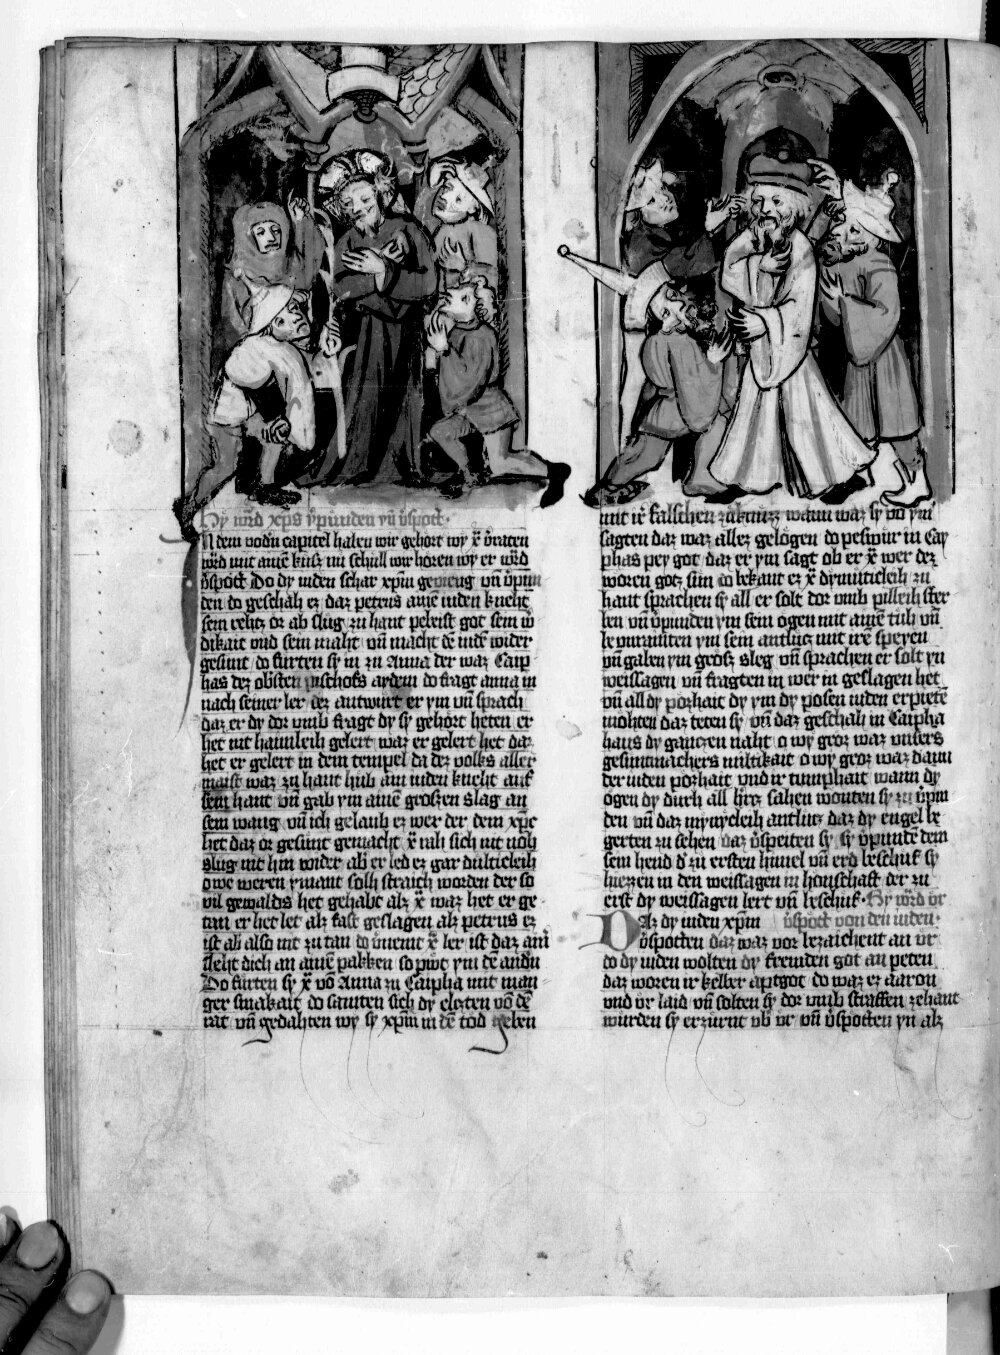 Hy wͬd xp̄s v̓punden vn̄ v̓spott·
In dem vodn̄ capitel haben wir gehort wy x̄ v̓raten
wͬd mit ainē kusz nu schull wir horen wy er wͬd
v̓spott Do dy iuden schar xpm̄ gevieng vn̄ v̓pun
den do geschah ez daz petrus aime iuden kneht
sein rehtz or ab slug zu hant peleist got sein w̓
dikait vnd sein maht vn̄ macht dē iudē wider
gesunt do furten sy in zu Anna der waz Caip
has dez obsten pischofs aydem do fragt anna in
nach seiner ler dez antwurt er ym vn̄ sprach
daz er dy dor vmb fragt dy sy gehort heten er
het nit haimleih gelert waz er gelert het daz
het er gelert in dem tempel da dez volks aller
maist waz zu hant hub ain iuden kneht auf
sein hant vn̄ gab ym ainē groszen slag an
sein wang vn̄ ich gelaub ez wer der dem xpc
het daz or gesunt gemacht x̄ rah sich nit noh
slug nit hin wider ab̓ er led ez gar dultickleih
owe weren ymant solh straich worden der so
vil gewaldis het gehabt alz x̄ waz het er ge
tan er het let alz fast geslagen alz petrus ez
ist ab̓ also nit zu tan do v̓nemt x̄ ler ist daz am̄
sleht dich an ainē pakken so pwt ym dē andn̄
Do furten sy x̄ vō Anna zu Caipha mit man
ger smakait do samten sich dy elezten vō dē
rat vn̄ gedahten wy sy xpm̄ in dē tod geben
mit ir̄ falschen zukunzz wann waz sy vō ym
sagten daz waz allez gelogen do peswur in Cay
phas pey got daz er ym sagt ob er x̄ wer dez
woren gotz sun do bekant er x̄ dymuticleih zu
hant sprachen sy all er solt dor vmb pilleih ster
ben vn̄ v̓punden ym sein ogen mit ainē tuh vn̄
be vnrainten ym sein antlutz mit irē speyen
vn̄ gaben ym grosz sleg vn̄ sprachen er solt yn
weissagen vn̄ fragten in wer in geslagen het
vn̄ all dy pozhait dy ym dy posen iuden erpietē
mohten daz teten sy vn̄ daz geschah in Caipha
haus dy ganczen naht o wy groz waz vnsers
gesuntmachers miltikait o wy groz waz dann
der iuden pozhait vnd ir tumphait wann dy
ogen dy durch all h̓rtz sahen wonten sy zu v̓pin
den vn̄ daz mynycleih antlutz daz dy engel be
gerten zu sehen daz v̓speiten sy sy v̓pundē dem
sein hend d̓ zu ersten himel vn̄ erd beschuf sy
hiezzen in den weissagen in honschaft der zu
erst dy weissagen lert vn̄ beschuf· Hy wͬd vr
Daz dy iuden xpm̄ v̓spott von den iuden·
v̓spotten daz waz vor bezaichent an vr
do dy iuden wolten dy fremden got an peten
daz woren ir kelber aptgot do waz ez aaron
vnd vr laid vn̄ solten sy dor vmb straffen zehant
wurden sy erzurnt vb̓ vr vn̄ v̓spotten yn alz